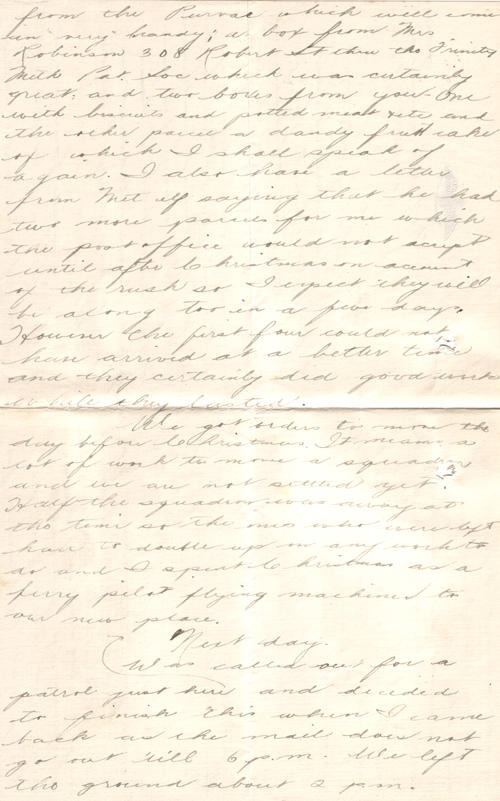 from the Purvac which will come
in very handy; a box from Mrs
Robinson 308 Robert St thru the Trinity
Meth Pat. Soc which was certainly
great; and two boxes from you. One
with biscuits and potted meat etc and
the other parcel a dandy fruit cake
of which I shall speak of
again. I also have a letter
from Metcalf saying that he had
two more parcels for me which
the post office would not accept
until after Christmas on account
of the rush so I expect they will
be along too in a few days.
However the first four could not
have arrived at a better time
and they certainly did good work
while they lasted.
We got orders to move the
day before Christmas. It means a
lot of work to move a squadron
and we are not settled yet.
Half the squadron was away at
the time so the ones who were left
have to double up on any work to
do and I spent Christmas as a
ferry pilot flying machines to
our new place.
Next day.
Was called out for a
patrol just here and decided
to finish this when I came
back as the mail does not
go out till 6 p.m. We left
the ground about 2 p.m.